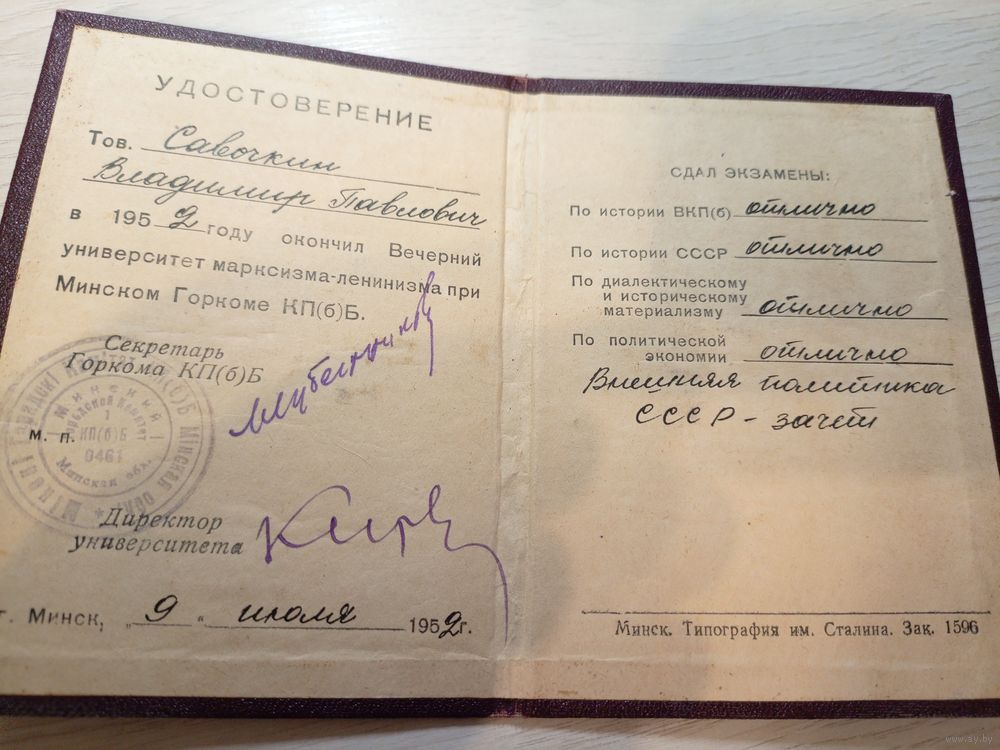 УДОСТОВЕРЕНИЕ
Тов. Савочкин
Владимир Павлович
в 1952 году окончил Вечерний
университет марксизма-ленинизма при
Минском Горкоме КП(б)Б.
Секретарь
Горкома КП(б)Б
м. п.
Минский
Городской Комитет
1
КП(б)Б
0461
Минская обл.
Директор
университета
г. Минск, „9“ июля 1952г.
СДАЛ ЭКЗАМЕНЫ:
По истории ВКП(б) отлично
По истории СССР отлично
По диалектическому
и историческому
материализму отлично
По политической
экономии отлично
Внешняя политика
СССР - зачет
Минск. Типография им. Сталина. Зак. 1596
www.ay.by